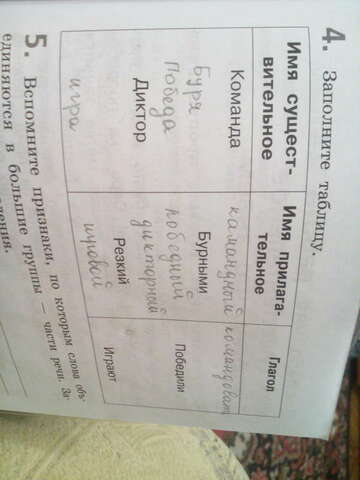 4. Заполните таблицу.
Имя сущест-
вительное
Имя прилага-
тельное
Глагол
Команда
камандный
командоват
Буря
Бурными
Победа
победный
Победили
Диктор
дикторный
Резкий
игра
игровой
Играют
5. Вспомните признаки, по которым слова объ-
единяются в большие группы — части речи. За-